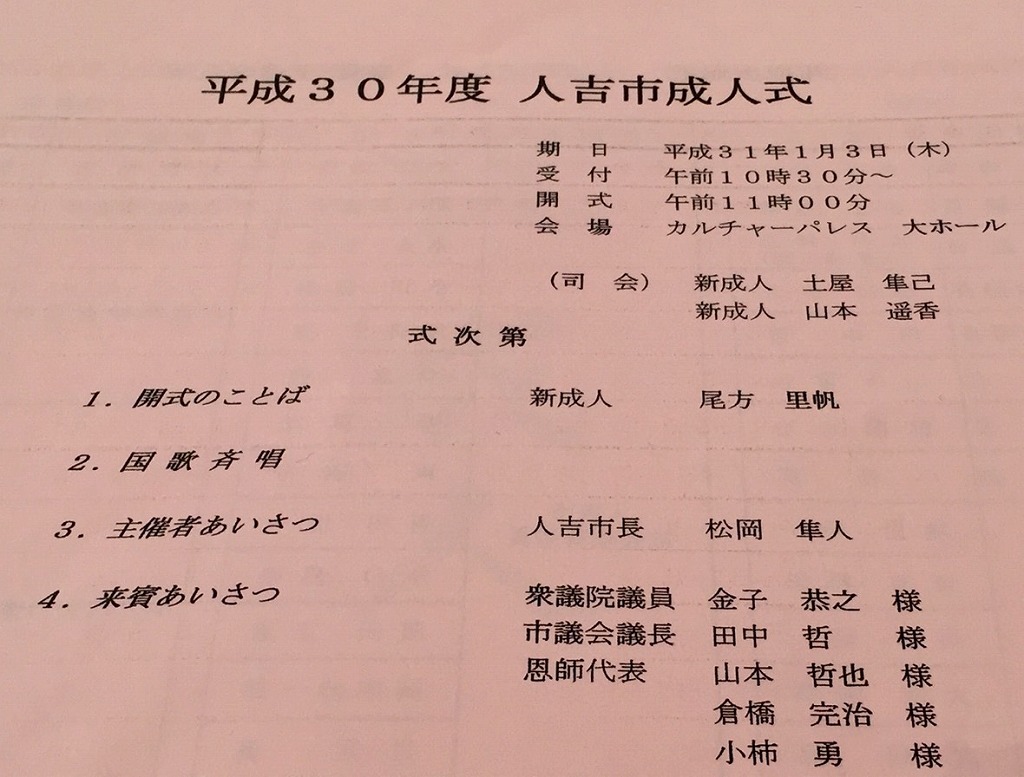 平成３０年度 人吉市成人式
期 日 平成３１年１月３日（木）
受 付 午前１０時３０分～
開 式 午前１１時００分
会 場 カルチャーパレス 大ホール
（司 会） 新成人 土屋 隼己
新成人 山本 遥香
式 次 第
１．開式のことば 新成人 尾方 里帆
２．国 歌 斉 唱
３．主催者あいさつ 人吉市長 松岡 隼人
４．来賓あいさつ 衆議院議員 金子 恭之 様
市議会議長 田中 哲 様
恩師代表 山本 哲也 様
倉橋 完治 様
小柿 勇 様